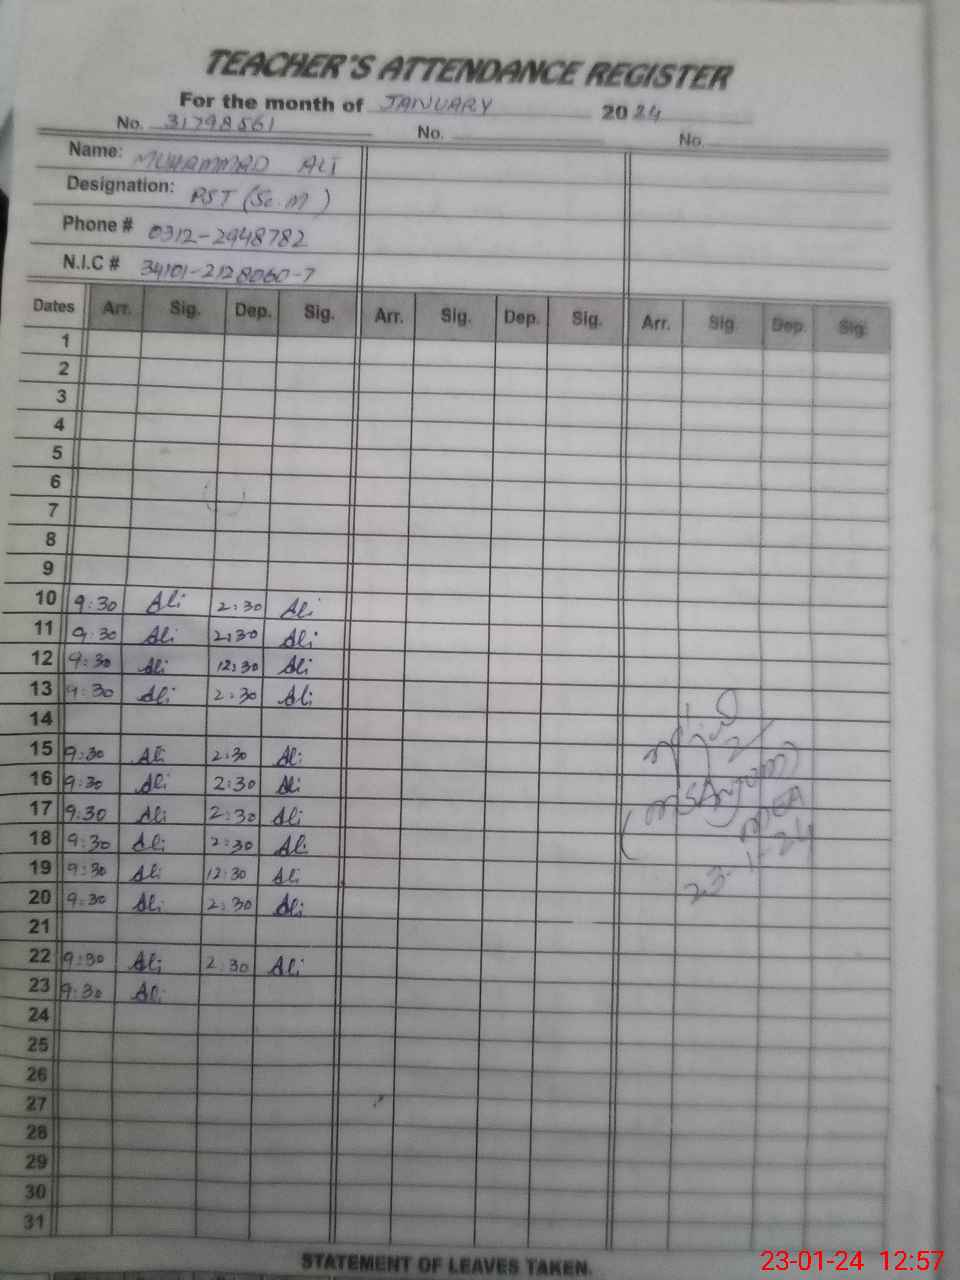 TEACHER'S ATTENDANCE REGISTER
For the month of JANUARY 2024
No. 31798561 No. No.
Name: MUHAMMAD ALI
Designation: PST (Sc. M)
Phone # 0312-2948782
N.I.C # 34101-2128060-7
Dates Arr. Sig. Dep. Sig. Arr. Sig. Dep. Sig. Arr. Sig. Dep. Sig.
1
2
3
4
5
6
7
8
9
10 9:30 Ali 2:30 Ali
11 9:30 Ali 2:30 Ali
12 9:30 Ali 12:30 Ali
13 9:30 Ali 2:30 Ali
14
15 9:30 Ali 2:30 Ali
16 9:30 Ali 2:30 Ali
17 9:30 Ali 2:30 Ali
18 9:30 Ali 2:30 Ali
19 9:30 Ali 12:30 Ali
20 9:30 Ali 2:30 Ali
21
22 9:30 Ali 2:30 Ali
23 9:30 Ali
24
25
26
27
28
29
30
31
MEA
23-1-24
STATEMENT OF LEAVES TAKEN.
23-01-24 12:57